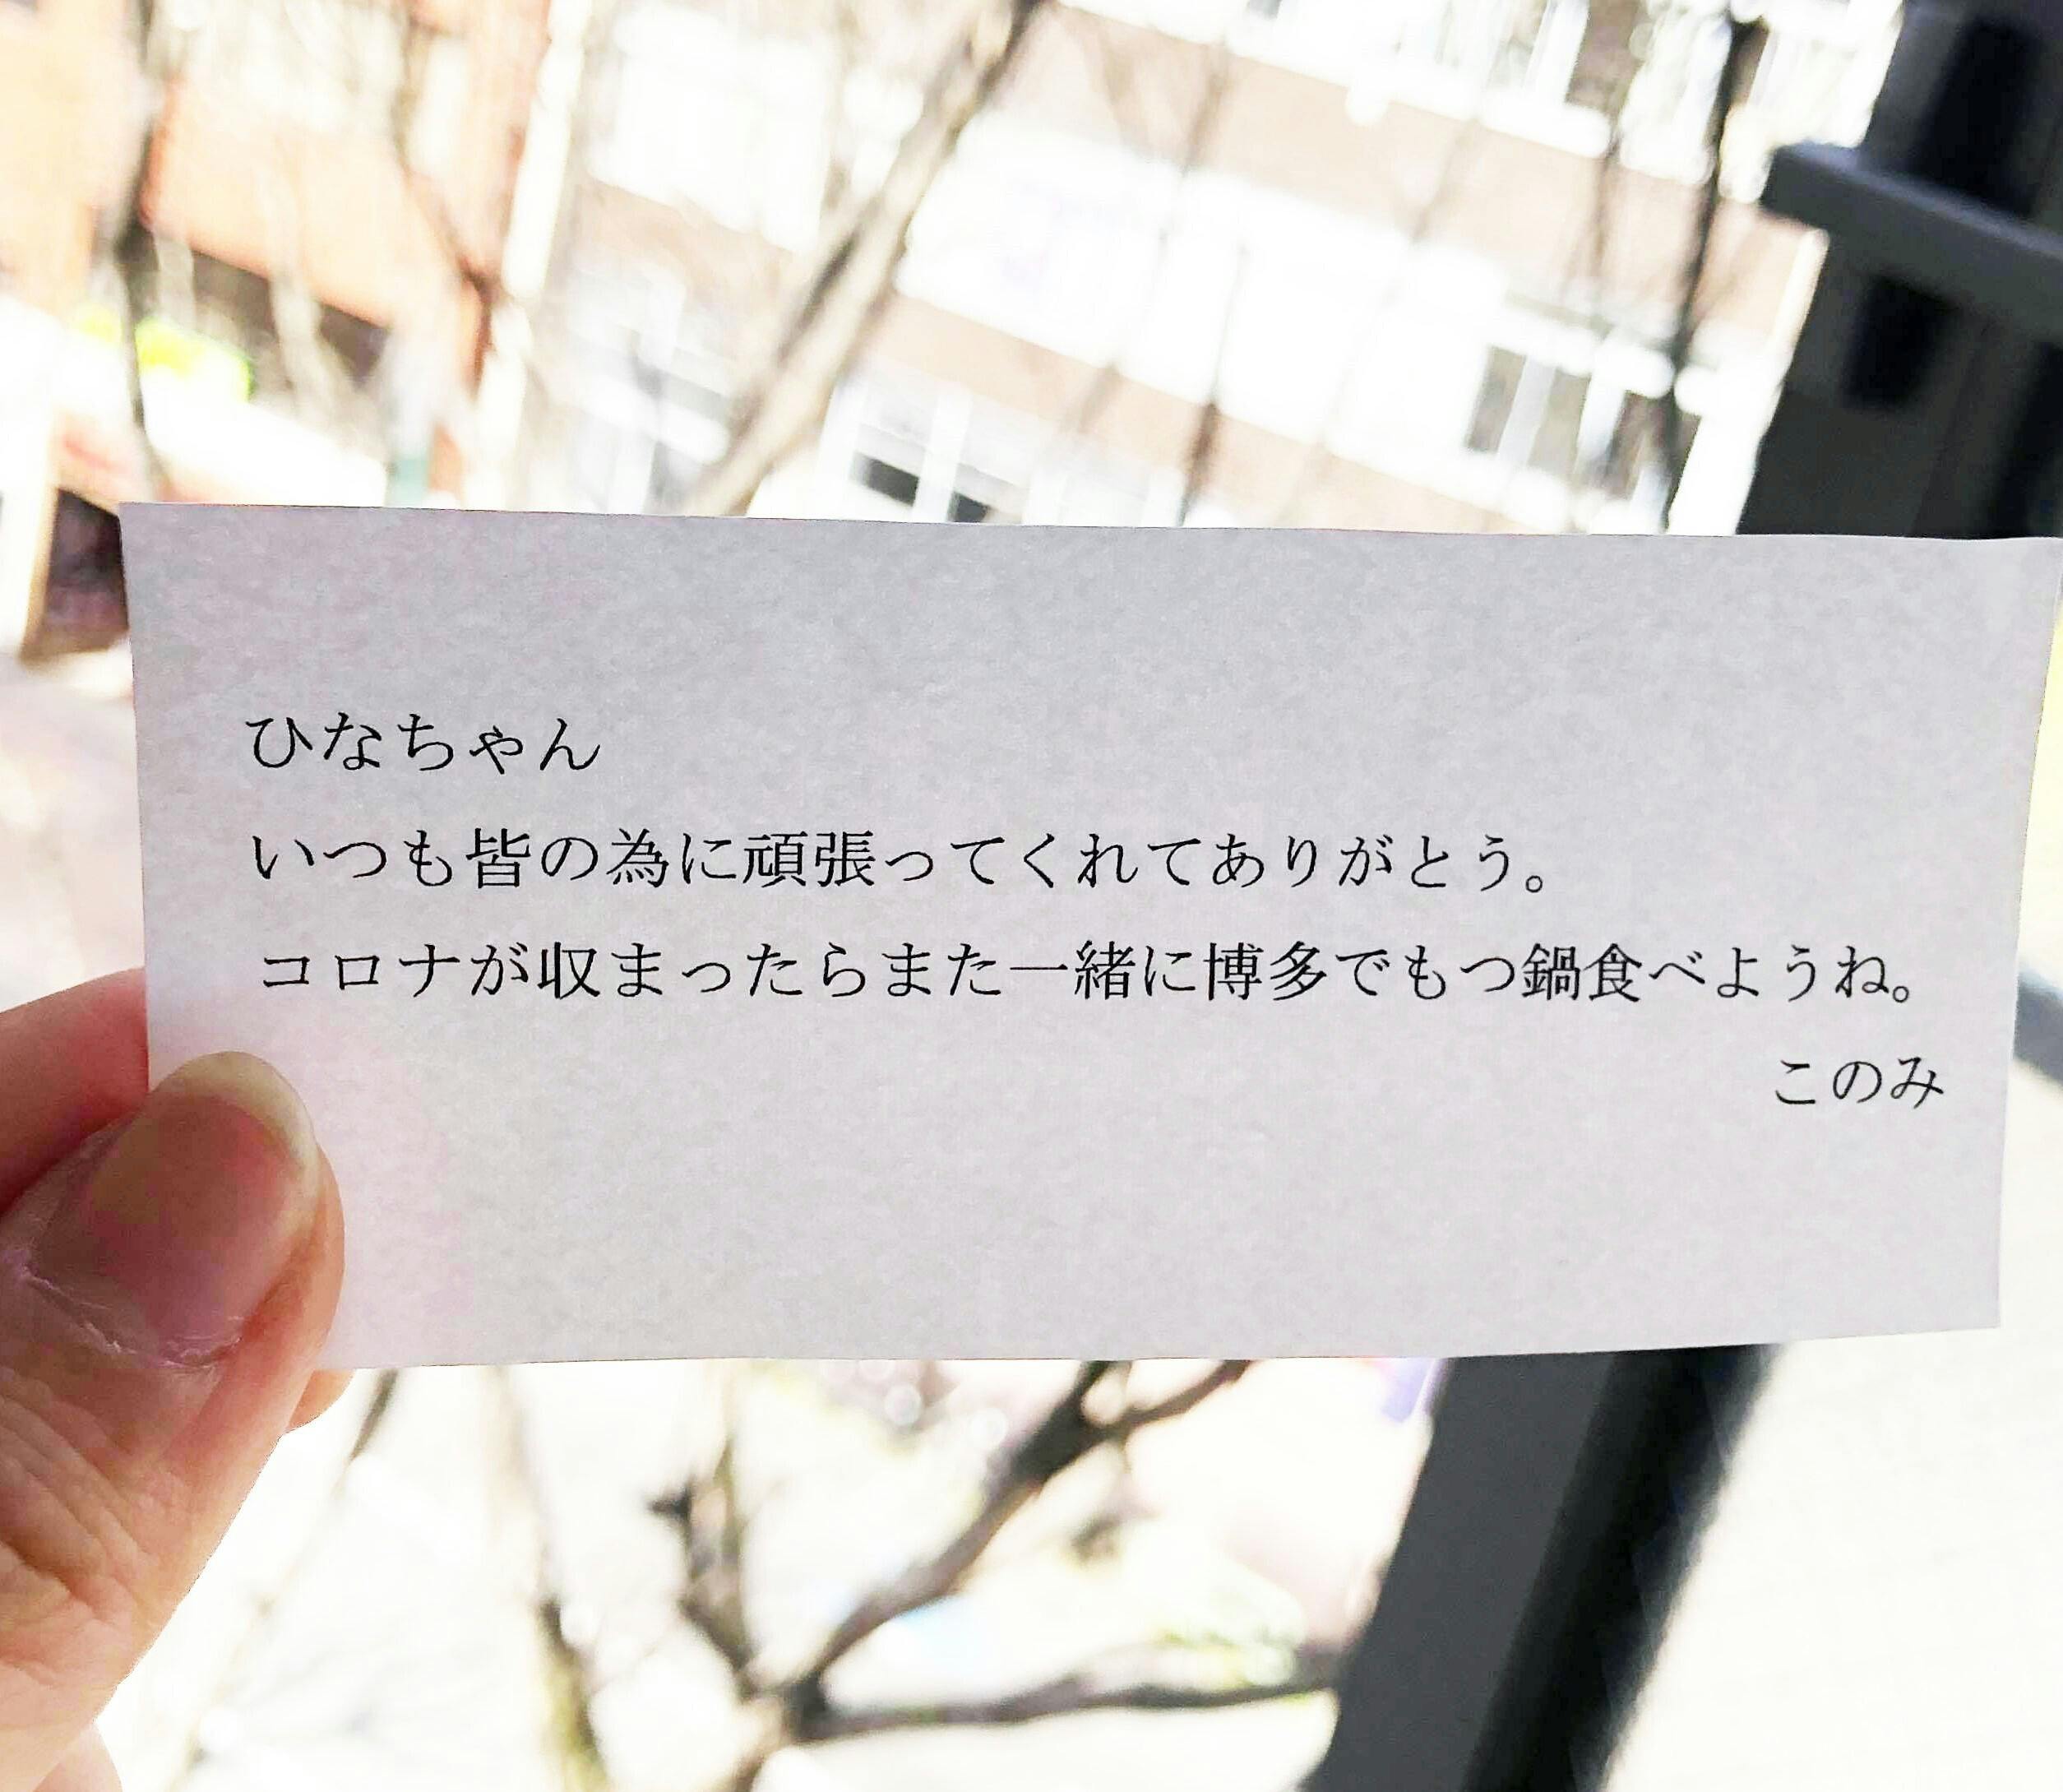 ひなちゃん
いつも皆の為に頑張ってくれてありがとう。
コロナが収まったらまた一緒に博多でもつ鍋食べようね。
このみ